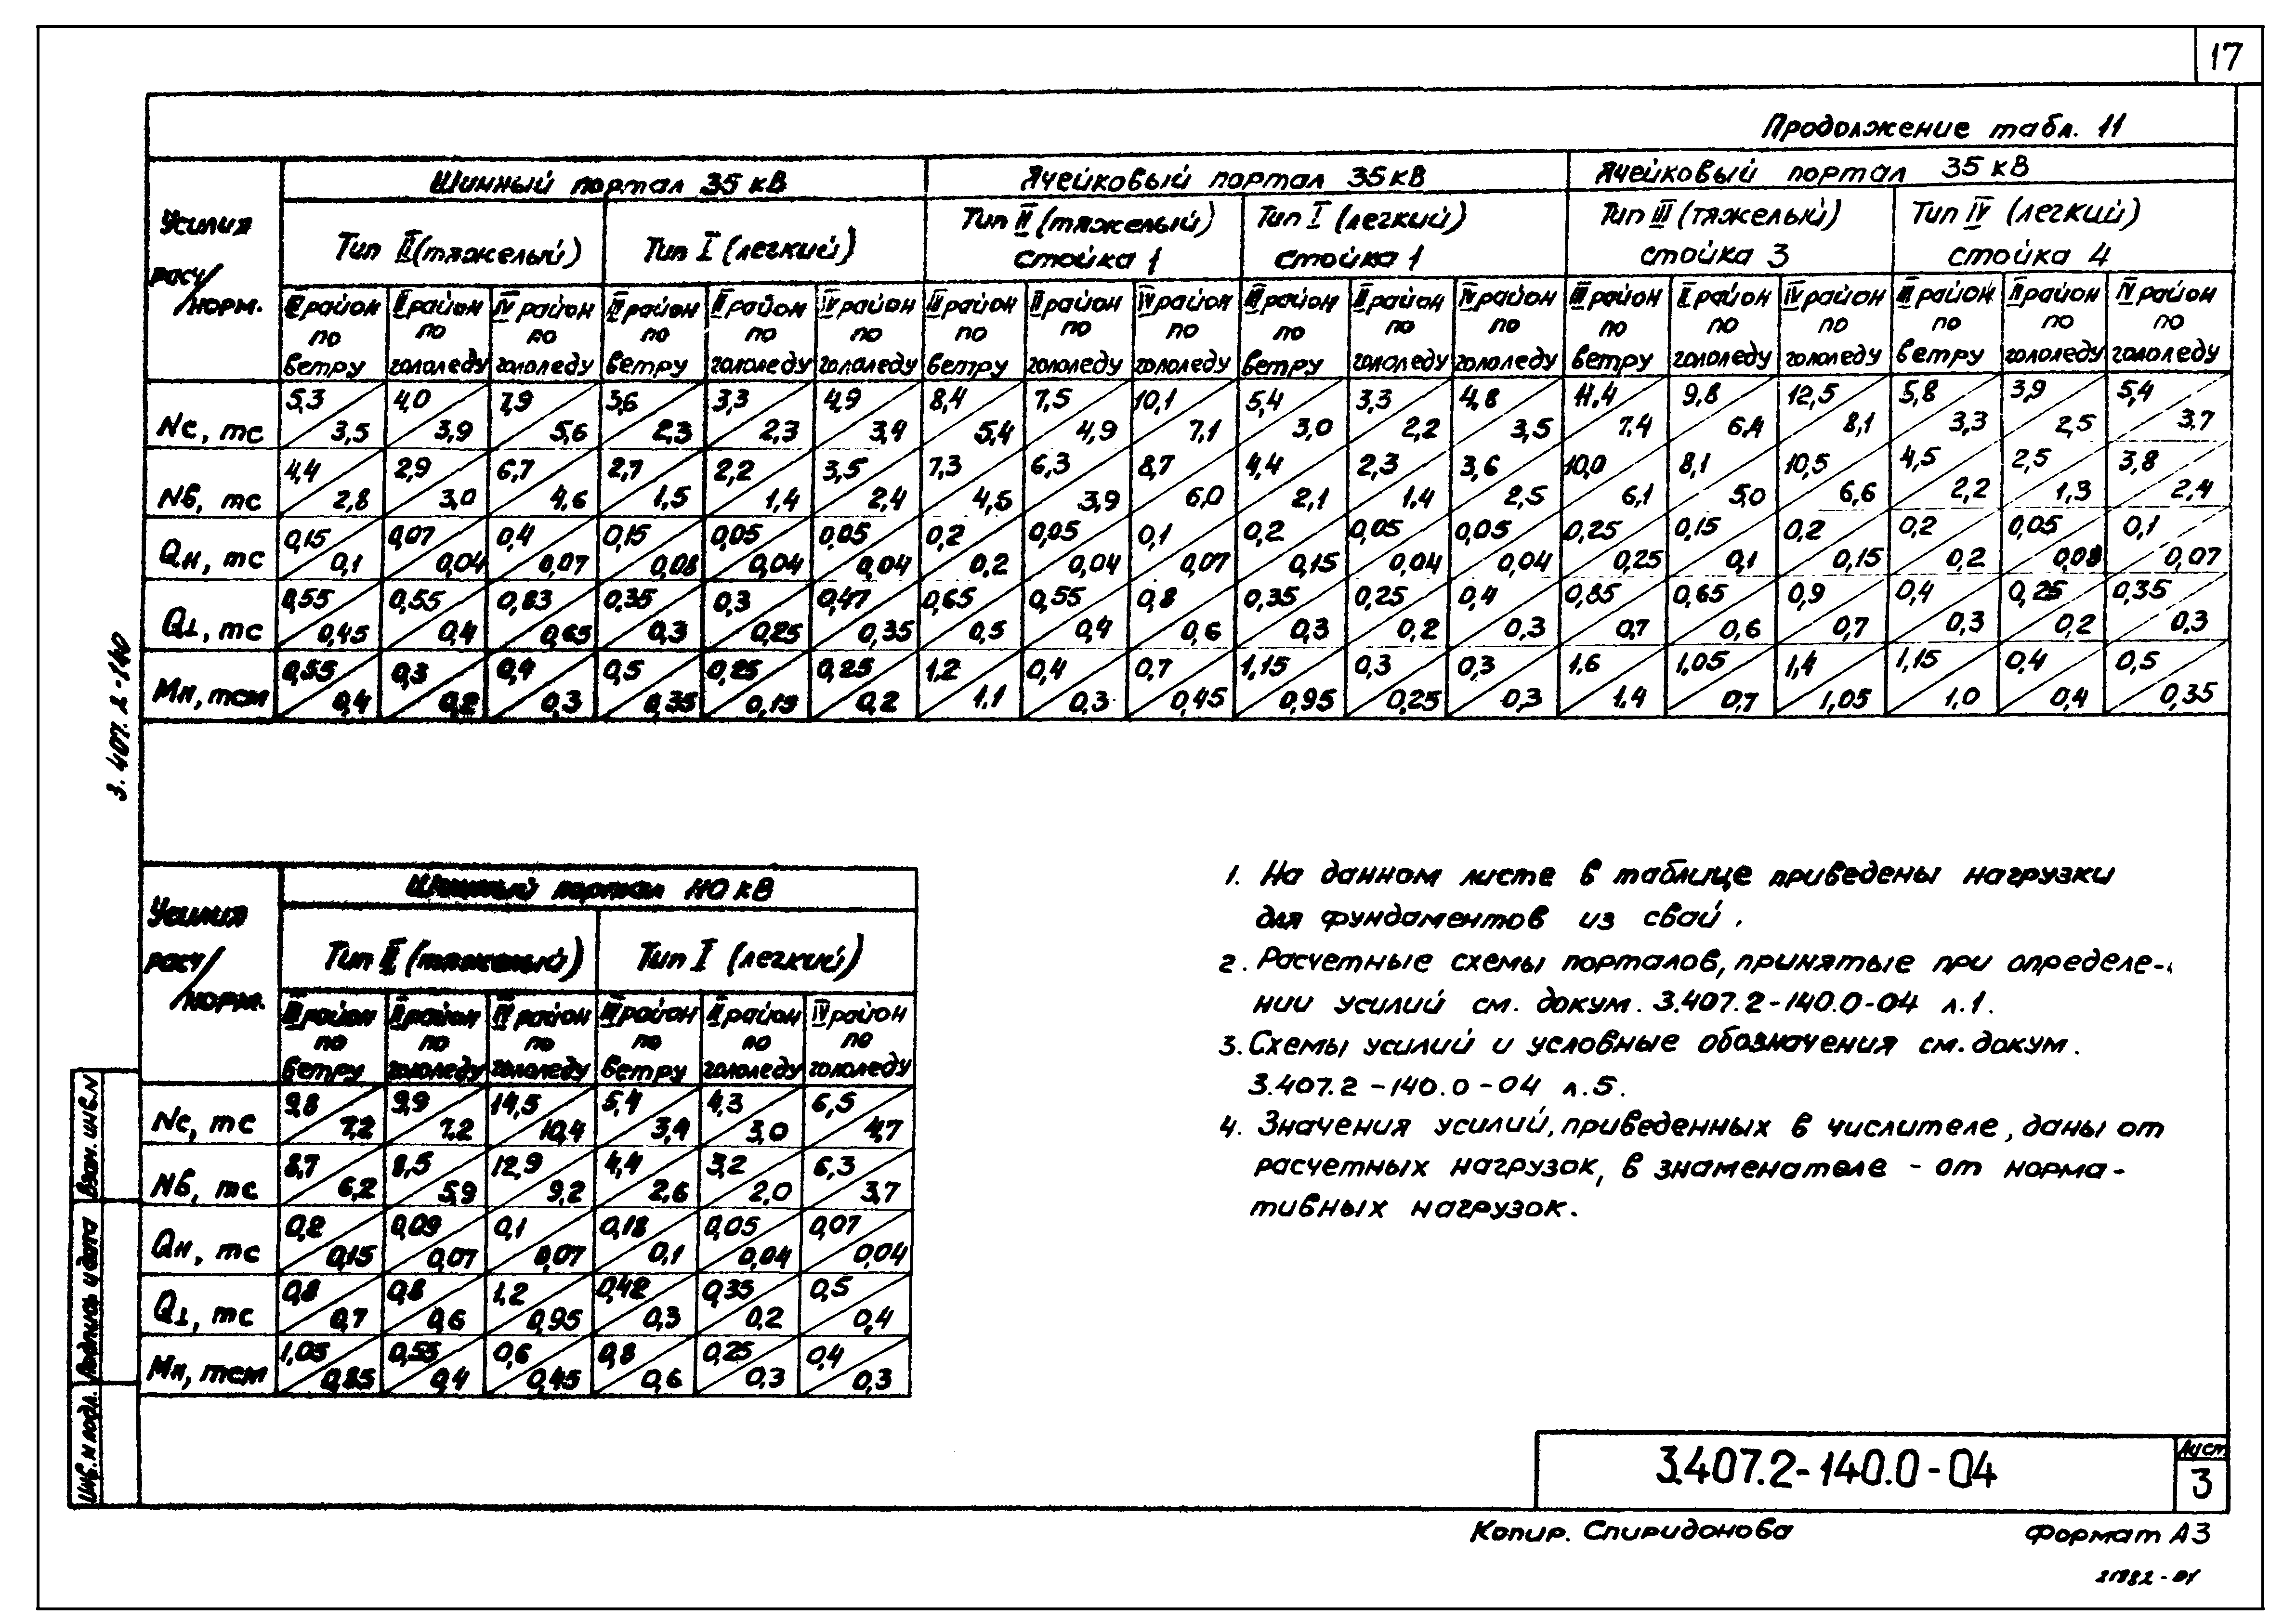 17
Продолжение табл. 11
Усилия расч/норм. | Шинный портал 35 кВ | Ячейковый портал 35 кВ | Ячейковый портал 35 кВ
Тип II (тяжелый) | Тип I (легкий) | Тип II (тяжелый) стойка 1 | Тип I (легкий) стойка 1 | Тип III (тяжелый) стойка 3 | Тип IV (легкий) стойка 4
III район по ветру | II район по гололеду | IV район по гололеду | III район по ветру | II район по гололеду | IV район по гололеду | III район по ветру | II район по гололеду | IV район по гололеду | III район по ветру | II район по гололеду | IV район по гололеду | III район по ветру | II район по гололеду | IV район по гололеду | III район по ветру | II район по гололеду | IV район по гололеду
Nс, тс | 5,3/3,5 | 4,0/3,9 | 7,9/5,6 | 3,6/2,3 | 3,3/2,3 | 4,9/3,4 | 8,4/5,4 | 7,5/4,9 | 10,1/7,1 | 5,4/3,0 | 3,3/2,2 | 4,8/3,5 | 11,4/7,4 | 9,8/6,4 | 12,5/8,1 | 5,8/3,3 | 3,9/2,5 | 5,4/3,7
Nв, тс | 4,4/2,8 | 2,9/3,0 | 6,7/4,6 | 2,7/1,5 | 2,2/1,4 | 3,5/2,4 | 7,3/4,6 | 6,3/3,9 | 8,7/6,0 | 4,4/2,1 | 2,3/1,4 | 3,6/2,5 | 10,0/6,1 | 8,1/5,0 | 10,5/6,6 | 4,5/2,2 | 2,5/1,3 | 3,8/2,4
Qн, тс | 0,15/0,1 | 0,07/0,04 | 0,4/0,07 | 0,15/0,08 | 0,05/0,04 | 0,05/0,04 | 0,2/0,2 | 0,05/0,04 | 0,1/0,07 | 0,2/0,15 | 0,05/0,04 | 0,05/0,04 | 0,25/0,25 | 0,15/0,1 | 0,2/0,15 | 0,2/0,2 | 0,05/0,08 | 0,1/0,07
Q⊥, тс | 0,55/0,45 | 0,55/0,4 | 0,83/0,65 | 0,35/0,3 | 0,3/0,25 | 0,47/0,35 | 0,65/0,5 | 0,55/0,4 | 0,8/0,6 | 0,35/0,3 | 0,25/0,2 | 0,4/0,3 | 0,85/0,7 | 0,65/0,6 | 0,9/0,7 | 0,4/0,3 | 0,25/0,2 | 0,35/0,3
Mн, тсм | 0,55/0,4 | 0,3/0,2 | 0,4/0,3 | 0,5/0,35 | 0,25/0,15 | 0,25/0,2 | 1,2/1,1 | 0,4/0,3 | 0,7/0,45 | 1,15/0,95 | 0,3/0,25 | 0,3/0,3 | 1,6/1,4 | 1,05/0,7 | 1,4/1,05 | 1,15/1,0 | 0,4/0,4 | 0,5/0,35
3.407.2-140
Усилия расч/норм. | Шинный портал 110 кВ
Тип II (тяжелый) | Тип I (легкий)
III район по ветру | II район по гололеду | IV район по гололеду | III район по ветру | II район по гололеду | IV район по гололеду
Nс, тс | 9,8/7,2 | 9,9/7,2 | 14,5/10,4 | 5,4/3,4 | 4,3/3,0 | 6,5/4,7
Nв, тс | 8,7/6,2 | 8,5/5,9 | 12,9/9,2 | 4,4/2,6 | 3,2/2,0 | 6,3/3,7
Qн, тс | 0,2/0,15 | 0,09/0,07 | 0,1/0,07 | 0,18/0,1 | 0,05/0,04 | 0,07/0,04
Q⊥, тс | 0,8/0,7 | 0,8/0,6 | 1,2/0,95 | 0,42/0,3 | 0,35/0,2 | 0,5/0,4
Mн, тсм | 1,05/0,85 | 0,55/0,4 | 0,6/0,45 | 0,8/0,6 | 0,25/0,3 | 0,4/0,3
1. На данном листе в таблице приведены нагрузки
для фундаментов из свай.
2. Расчетные схемы порталов, принятые при определе-
нии усилий см. докум. 3.407.2-140.0-04 л.1.
3. Схемы усилий и условные обозначения см. докум.
3.407.2-140.0-04 л.5.
4. Значения усилий, приведенных в числителе, даны от
расчетных нагрузок, в знаменателе - от норма-
тивных нагрузок.
Взам. инв. N
Подпись и дата
Инв. N подл.
3.407.2-140.0-04
Лист
3
Копир. Спиридонова
Формат А3
21982-01